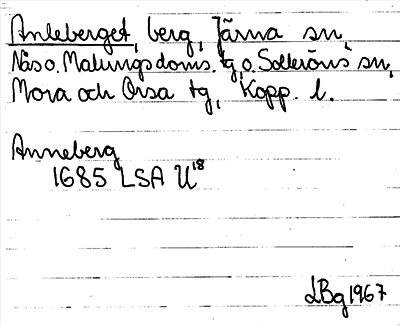 Anleberget, berg, Järna sn,
Nås o. Malungs doms. tg, o. Solleröns sn,
Mora och Orsa tg, Kopp. l.
Anneberg
1685 LSA U18
LBg 1967